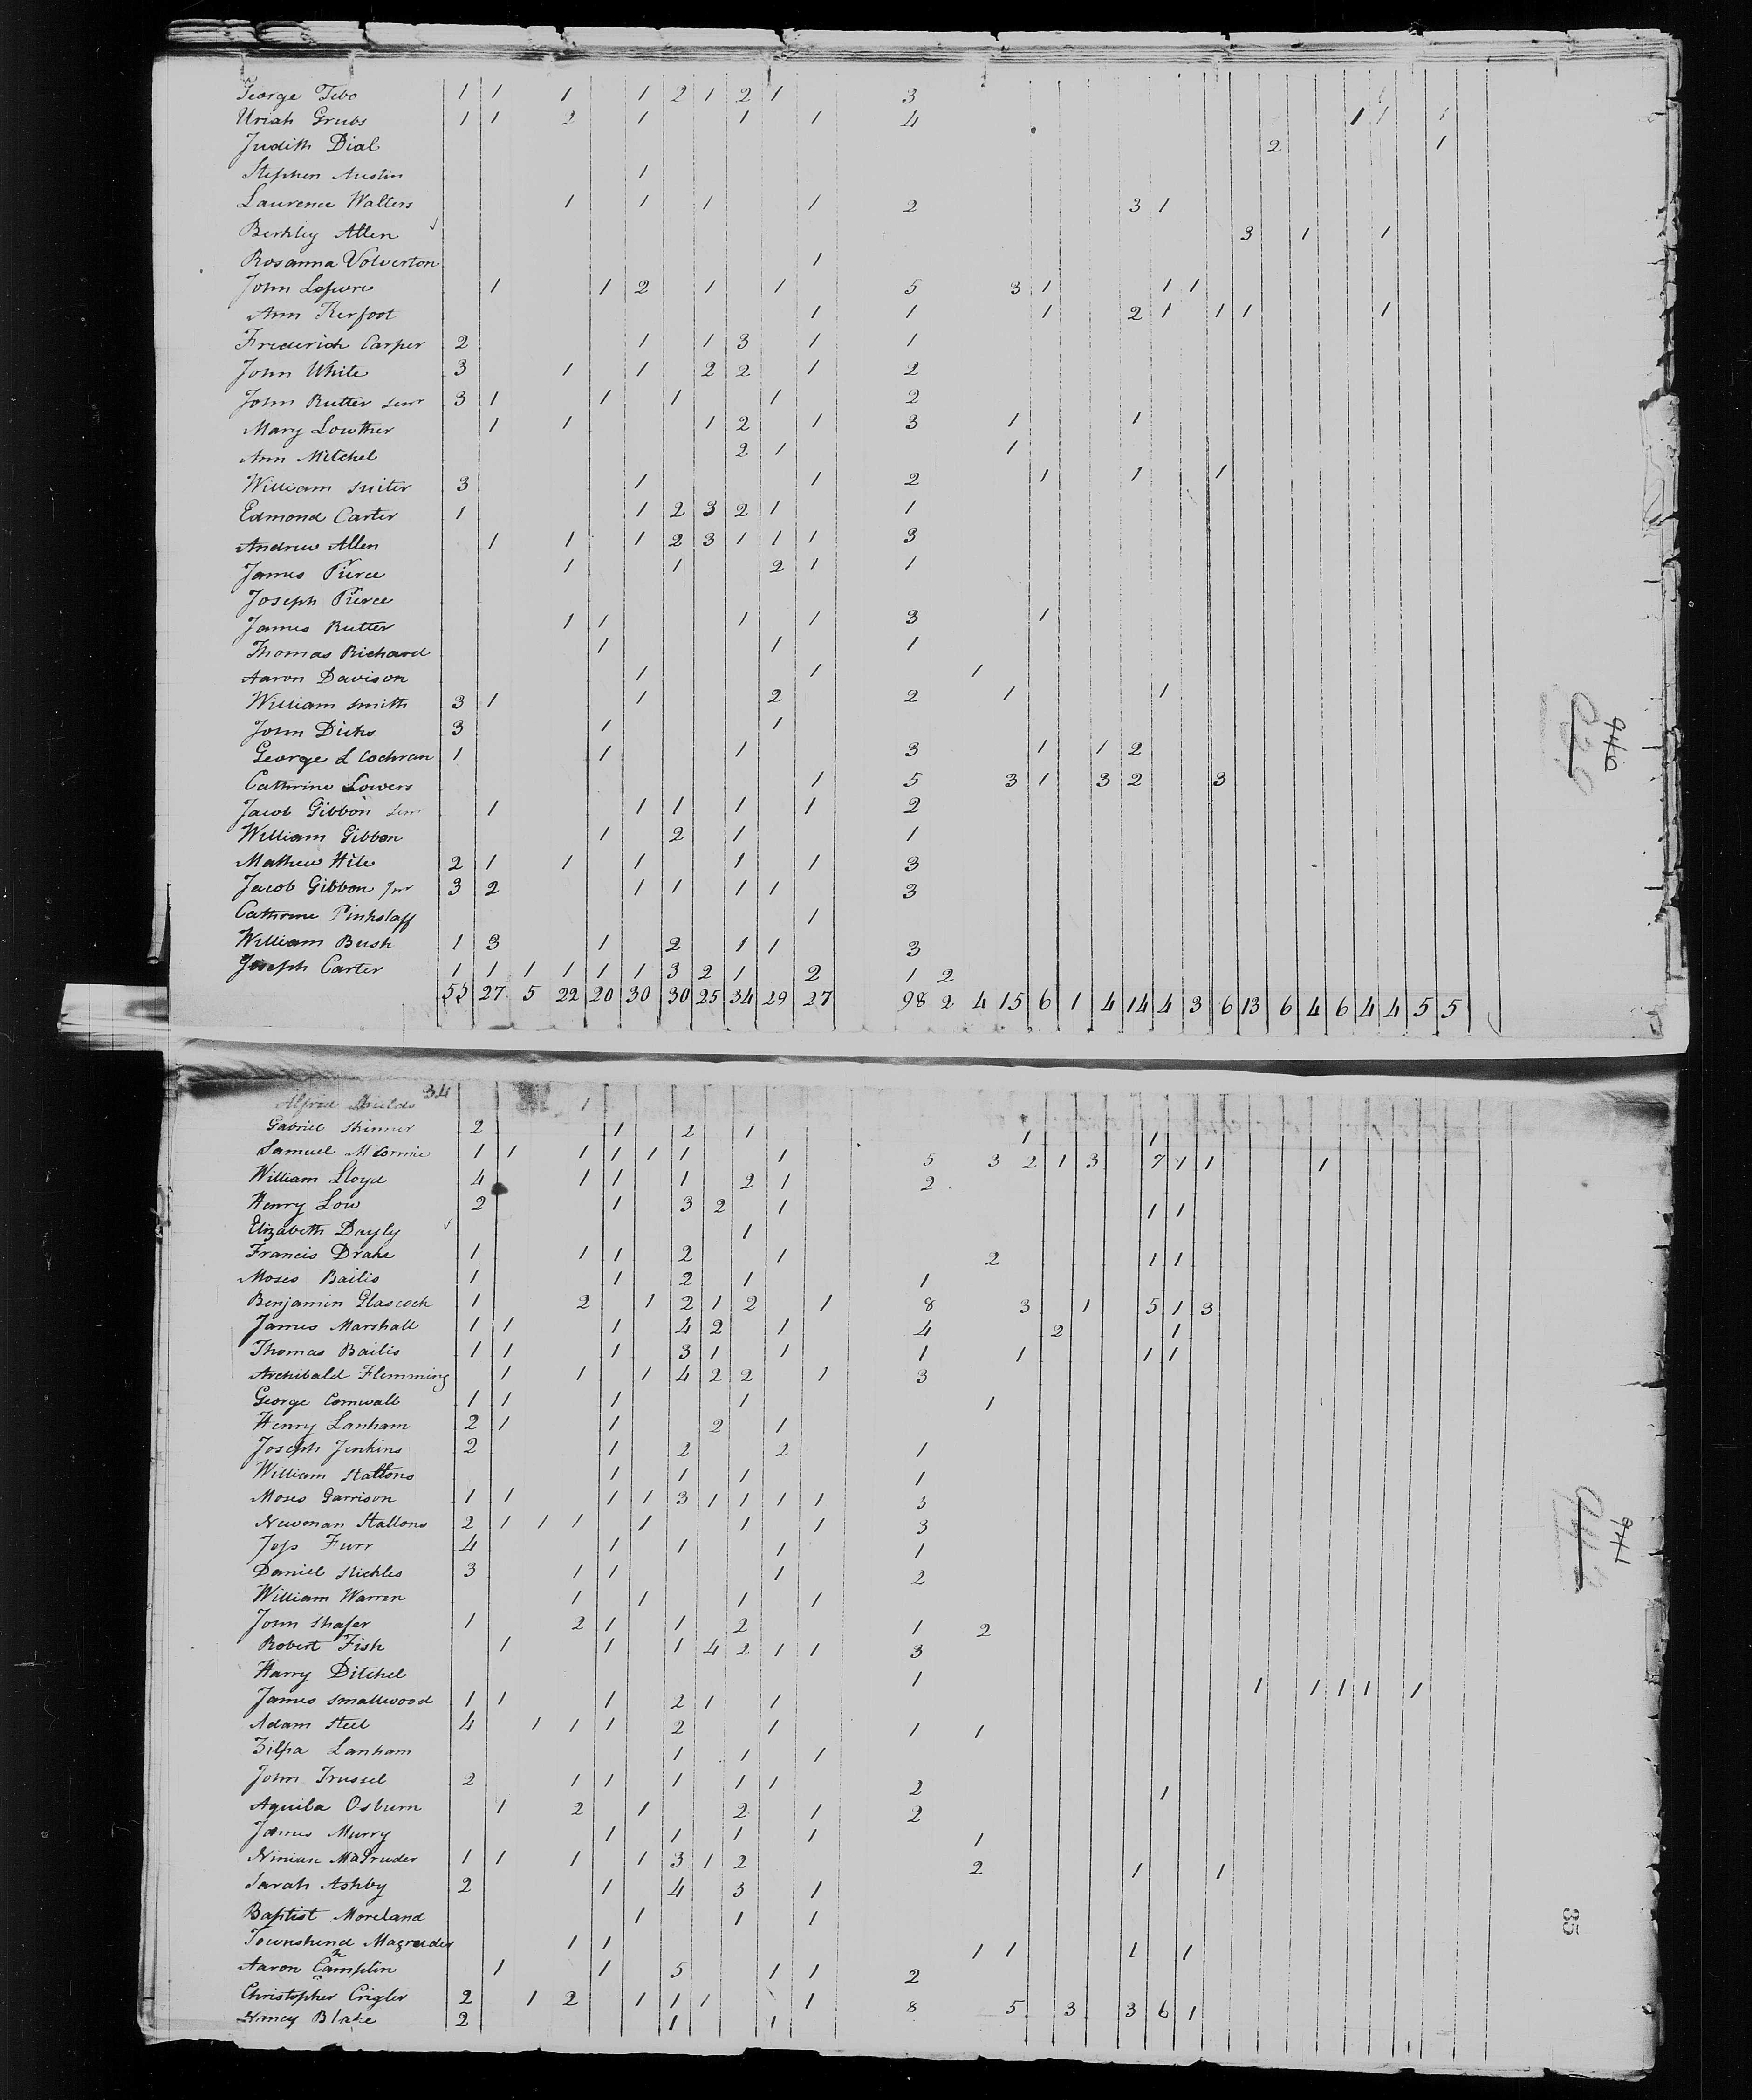 George Tebo 1 1 1 1 2 1 2 1 3
Uriah Grubs 1 1 2 1 1 1 4 1 1 1
Judith Dial 2 1
Stephen Austin 1
Laurence Walters 1 1 1 1 2 3 1
Berkley Allen 3 1 1
Rosanna Volverton 1
John Lefevre 1 1 2 1 1 5 3 1 1 1
Ann Kerfoot 1 1 1 2 1 1 1 1
Frederick Carper 2 1 1 3 1 1
John White 3 1 1 2 2 1 2
John Rutter Senr 3 1 1 1 1 2
Mary Lowther 1 1 1 2 1 3 1 1
Ann Mitchel 2 1 1
William Suiter 3 1 1 2 1 1 1
Edmond Carter 1 1 2 3 2 1 1
Andrew Allen 1 1 1 2 3 1 1 1 3
James Pierce 1 1 2 1 1
Joseph Pierce
James Rutter 1 1 1 1 3 1
Thomas Richard 1 1 1
Aaron Davison 1 1 1
William Smith 3 1 1 2 2 1 1
John Dicks 3 1 1
George L Cochran 1 1 1 3 1 1 2
Cathrine Lowers 1 5 3 1 3 2 3
Jacob Gibbon Senr 1 1 1 1 1 2
William Gibbon 1 2 1 1
Mathew Hile 2 1 1 1 1 1 3
Jacob Gibbon Jnr 3 2 1 1 1 1 3
Cathrine Pinkstaff 1
William Bush 1 3 1 2 1 1 3
Joseph Carter 1 1 1 1 1 1 3 2 1 2 1 2
55 27 5 22 20 30 30 25 34 29 27 98 2 4 15 6 1 4 14 4 3 6 13 6 4 6 4 4 5 5
940
34
Alfred Shields 1
Gabriel Skinner 2 1 2 1 1 1
Samuel McCormic 1 1 1 1 1 1 1 5 3 2 1 3 7 1 1 1
William Lloyd 4 1 1 1 2 1 2
Henry Low 2 1 3 2 1 1 1
Elizabeth Dayly 1
Francis Drake 1 1 1 2 1 2 1 1
Moses Bailis 1 1 2 1 1
Benjamin Glascock 1 2 1 2 1 2 1 8 3 1 5 1 3
James Marshall 1 1 1 4 2 1 4 2 1
Thomas Bailis 1 1 1 3 1 1 1 1 1 1
Archibald Flemming 1 1 1 4 2 2 1 3
George Cornwall 1 1 1 1 1
Henry Lanham 2 1 1 2 1
Joseph Jenkins 2 1 2 2 1
William Stallons 1 1 1 1
Moses Garrison 1 1 1 1 3 1 1 1 1 3
Newman Stallons 2 1 1 1 1 1 1 3
Jess Furr 4 1 1 1 1
Daniel Stickles 3 1 1 1 2
William Warren 1 1 1 1
John Shafer 1 2 1 1 2 1 2
Robert Fish 1 1 1 4 2 1 1 3
Harry Ditchel 1 1 1 1 1 1
James Smallwood 1 1 1 2 1 1
Adam Steel 4 1 1 1 2 1 1 1
Zilpa Lanham 1 1 1
John Trussel 2 1 1 1 1 1 2 1
Aquila Osburn 1 2 1 2 1 2
James Murry 1 1 1 1 1
Ninian McGruder 1 1 1 1 3 1 2 2 1 1
Sarah Ashby 2 1 4 3 1
Baptist Moreland 1 1 1
Townshend Magruder 1 1 1 1 1 1
Aaron Camplin 1 1 5 1 1 2
Christopher Crigler 2 1 2 1 1 1 1 8 5 3 3 6 1
Nancy Blake 2 1 1
941
35